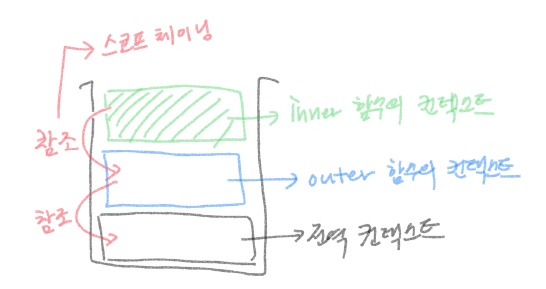 스코프 체이닝
inner 함수의 컨텍스트
참조
outer 함수의 컨텍스트
참조
전역 컨텍스트